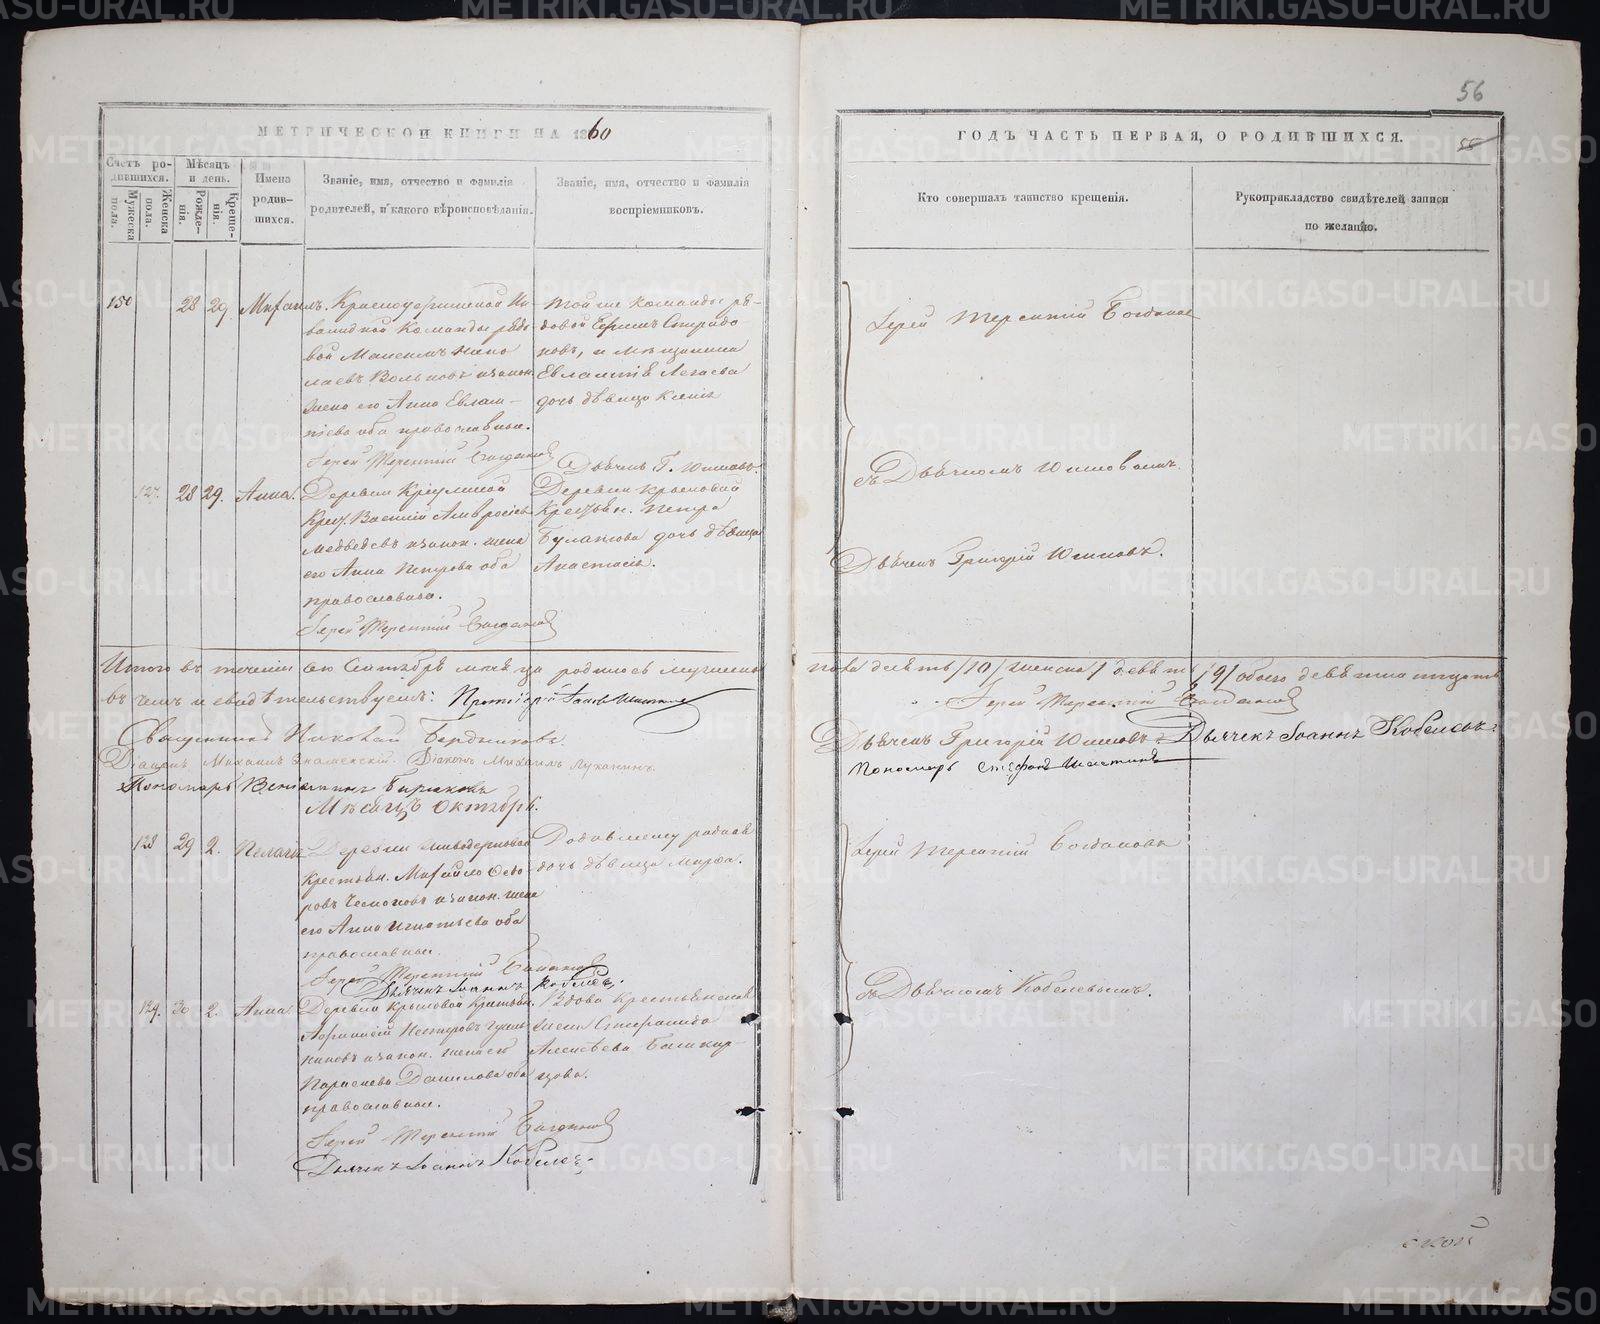 56
МЕТРИЧЕСКОЙ КНИГИ НА 1860
ГОДЪ ЧАСТЬ ПЕРВАЯ, О РОДИВШИХСЯ.
Счетъ родившихся.
Мужеска пола.
Женска пола.
Мѣсяцъ и день.
Рожденія.
Крещенія.
Имена родившихся.
Званіе, имя, отчество и фамилія
родителей, и какого вѣроисповѣданія.
Званіе, имя, отчество и фамилія
воспріемниковъ.
Кто совершалъ таинство крещенія.
Рукоприкладство свидѣтелей записи
по желанію.
150 28 29. Михаилъ.
Красноуфимской Ин-
валидной Команды рядо-
вой Максимъ Нико
лаевъ Вольновъ и закон.
жена его Анна Евлам-
піева оба православные.
Іерей Терентій Богданов
Той же команды ря-
довой Ефимъ Спиридо
новъ, и мѣщанина
дочь дѣвица Ксенія
Дьячекъ Г. Юшковъ.
Іерей Терентій Богданов
съ Дьячкомъ Юшковымъ.
Дьячекъ Григорій Юшковъ.
127. 28 29. Анна.
Деревни
Крест. Василій Амвросіевъ
Медведевъ и закон. жена
его Анна Петрова оба
православные.
Іерей Терентій Богданов
Деревни Крыловой
Крестьян. Петра
Булатова дочь дѣвица
Анастасія.
Итого въ теченіи сего Сентября месяца родилось мужеска
пола десять /10/ женска / девять /9/ обоего девятнадцать
въ чемъ и свидѣтельствуемъ: Протоіерей
Іерей Терентій Богданов
Священникъ Николай Бердниковъ.
Дьячекъ Григорій Юшковъ. Дьячекъ Іоаннъ Кобелевъ.
Діаконъ Михаилъ Знаменскій. Діаконъ Михаилъ Луканинъ.
Пономарь Стефанъ
Пономарь Веніаминъ Бирюковъ
Мѣсяцъ Октябрь.
128 29 2. Пелагія
Деревни
крестьян. Михайло Ѳедо-
ровъ и закон. жена
его Анна Игнатьева оба
православные.
Іерей Терентій Богданов
Дьячекъ Іоаннъ Кобелев.
дочь дѣвица Марѳа.
Іерей Терентій Богдановъ
съ Дьячкомъ Кобелевымъ.
129. 30 2. Анна.
Деревни Крыловой Крестьян.
Нестеровъ
и закон. жена его
Параскева Данилова оба
православные.
Іерей Терентій Богданов
Дьячекъ Іоаннъ Кобелев.
Вдова Крестьянская
жена Стефанида
Алексѣева Башкир-
цова.
ской
METRIKI.GASO-URAL.RU